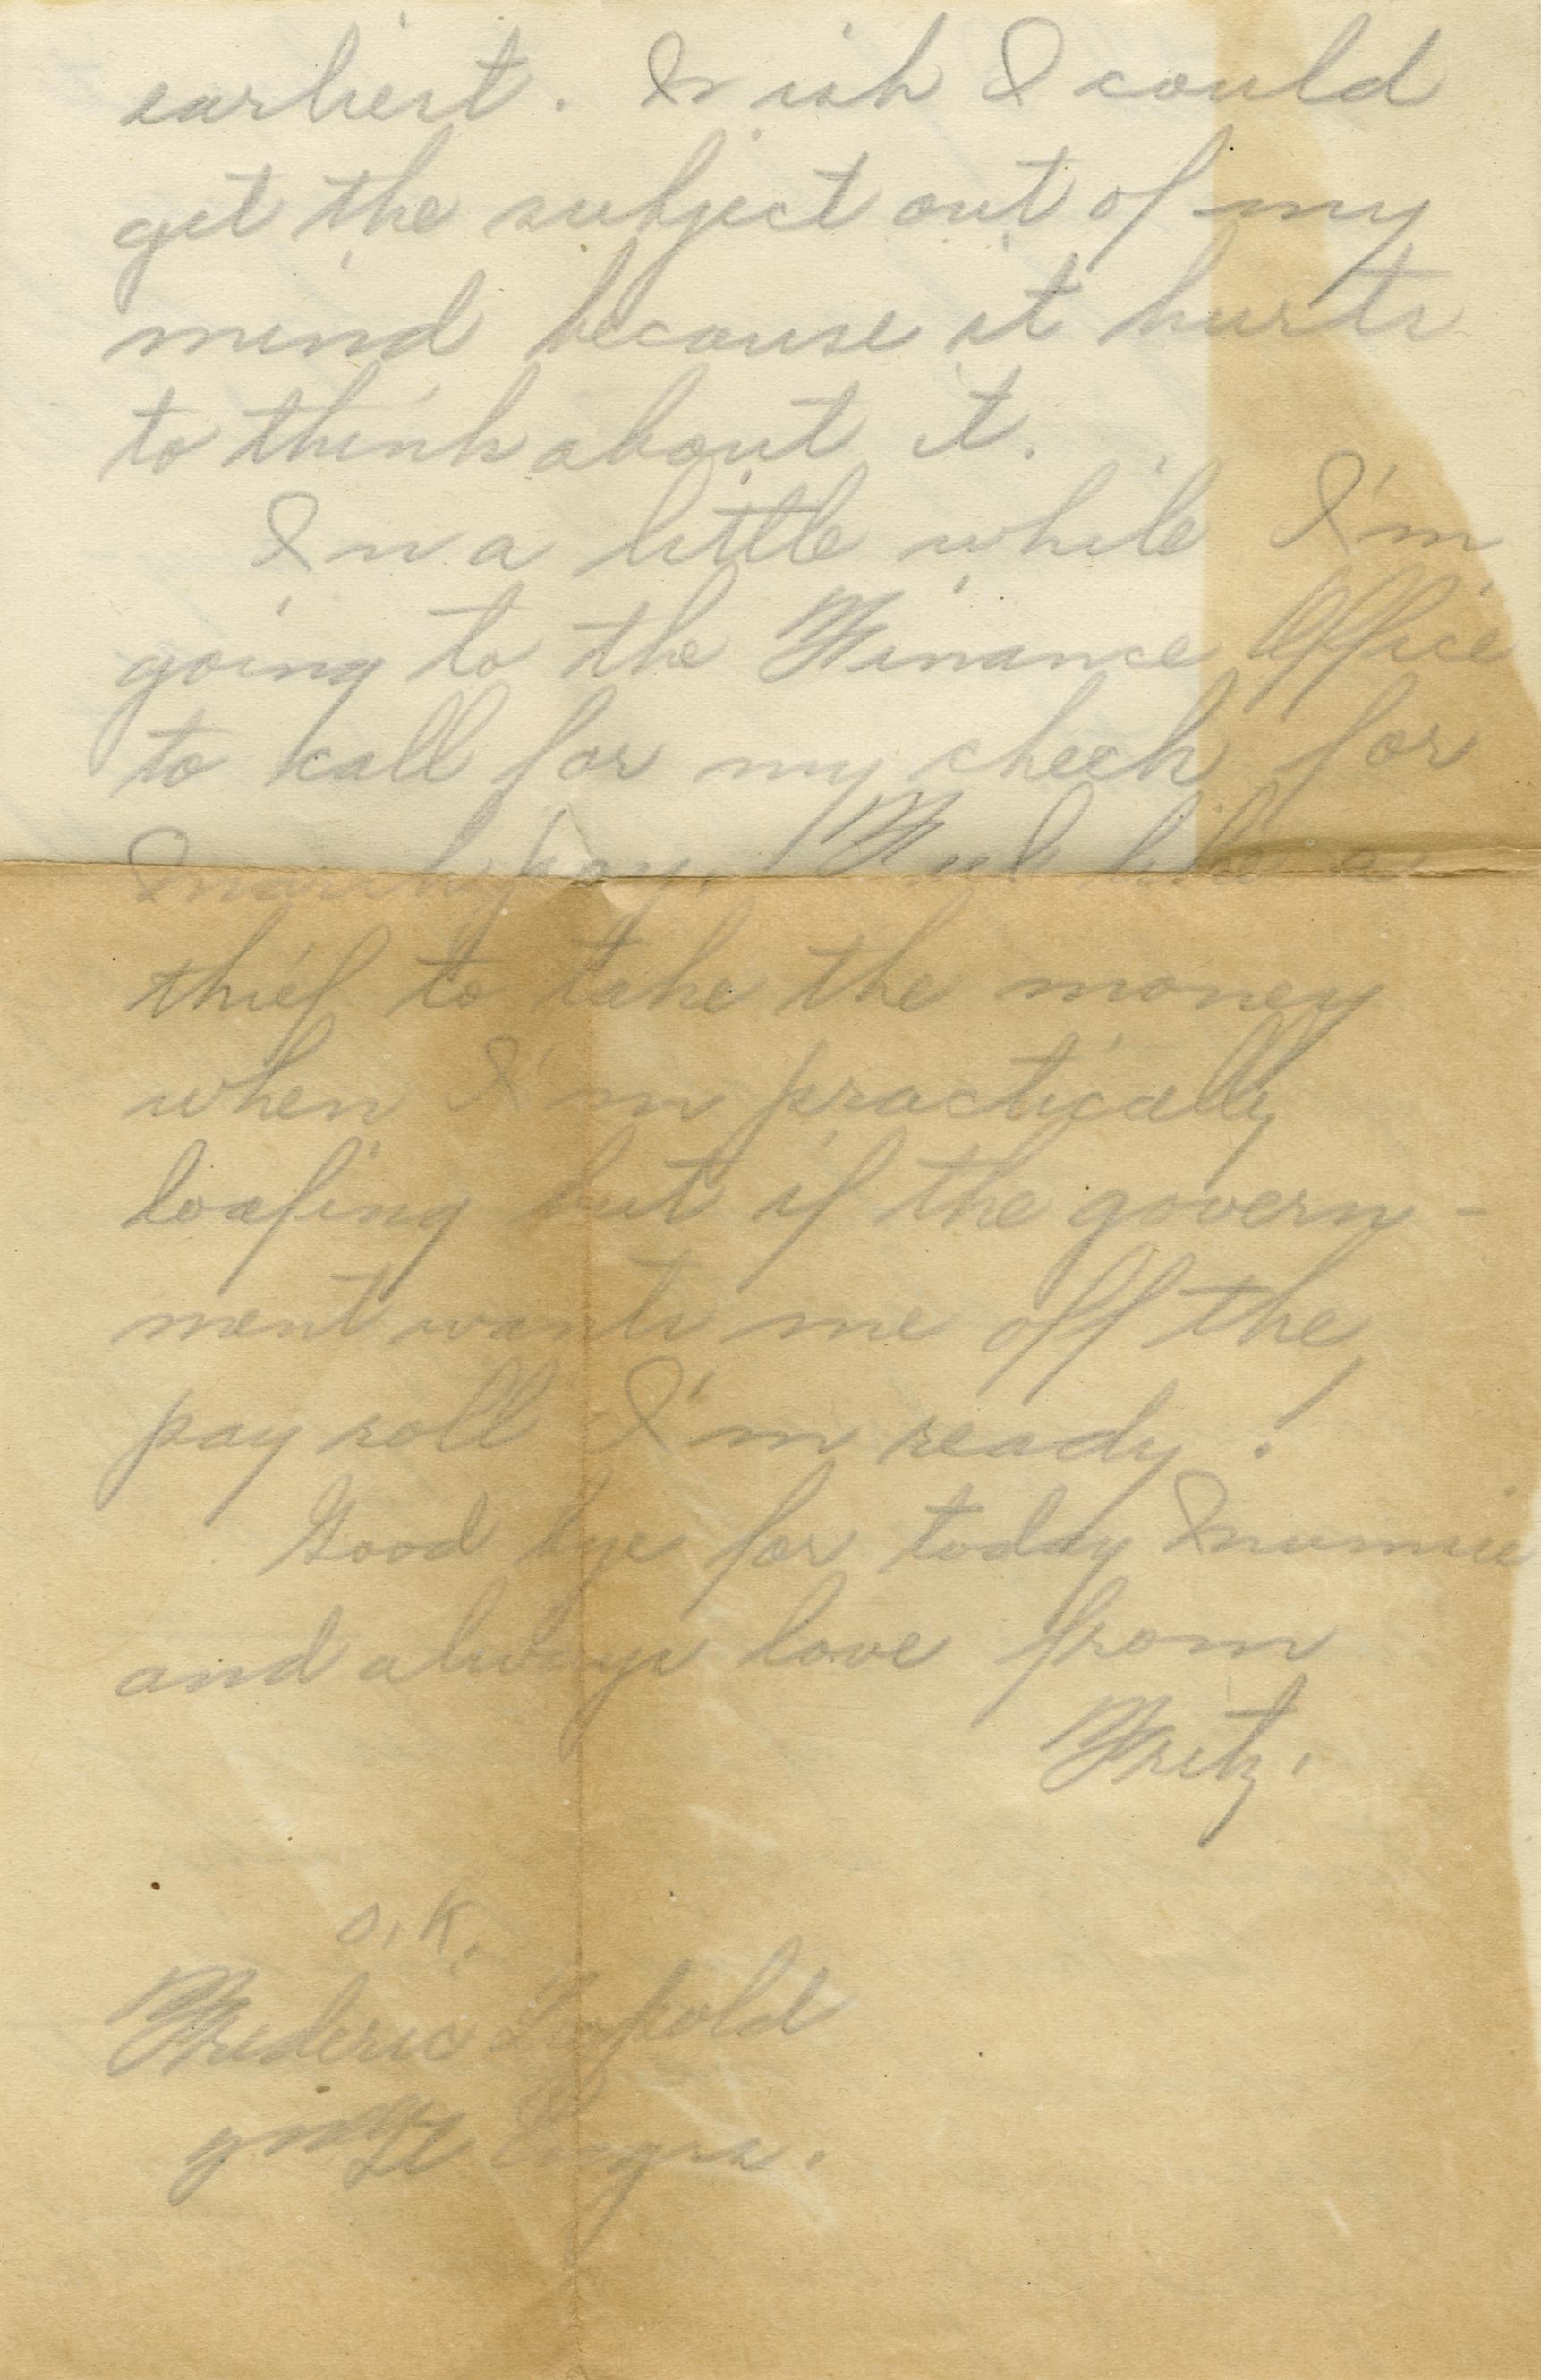 earliest. Wish I could
get the subject out of my
mind because it hurts
to think about it.
In a little while I'm
going to the Finance Office
to call for my check for
March pay. Feel like a
thief to take the money
when I'm practically
loafing but if the govern-
ment wants me off the
pay roll I'm ready!
Good bye for today Mumsie
and always love from
Fritz.
O.K.
Frederic Leopold
Lt Engrs.